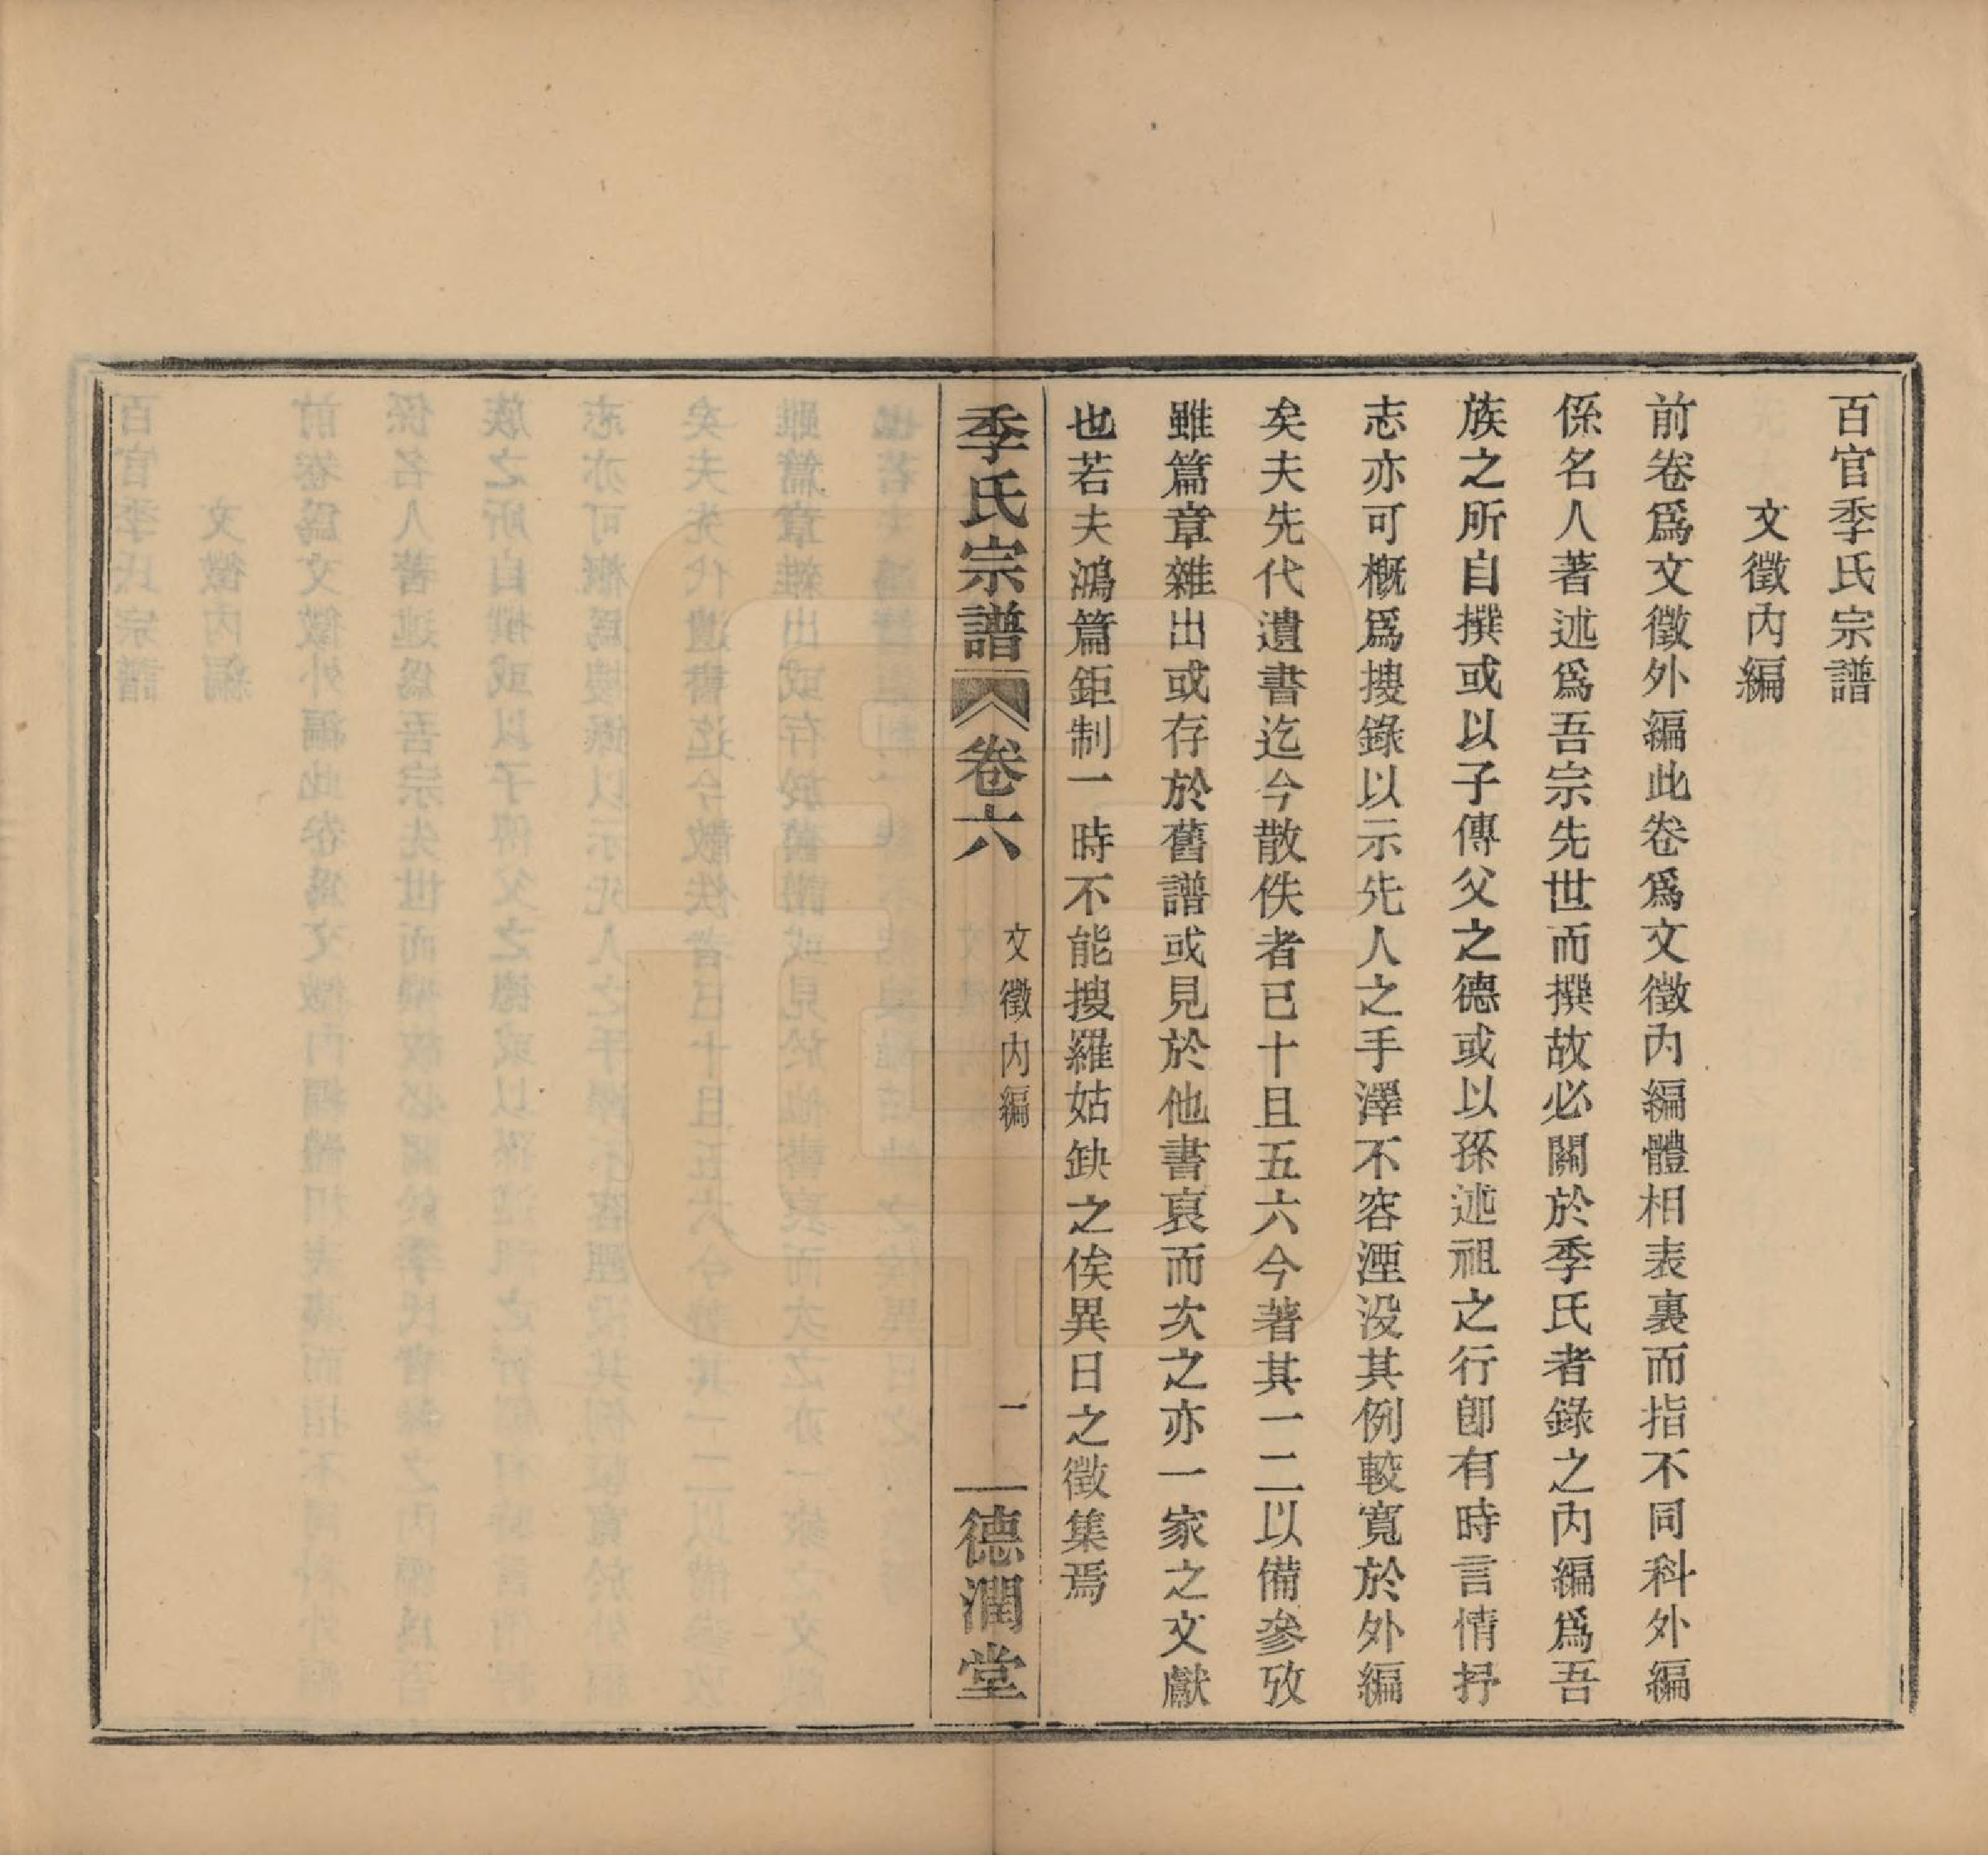 百官季氏宗譜
文徵內編
前卷爲文徵外編此卷爲文徵內編體相表裏而指不同科外編
係名人著述爲吾宗先世而撰故必關於季氏者錄之內編爲吾
族之所自撰或以子傳父之德或以孫述祖之行卽有時言情抒
志亦可槪爲搜錄以示先人之手澤不容湮没其例較寬於外編
矣夫先代遺書迄今散佚者已十且五六今著其一二以備參攷
雖篇章雜出或存於舊譜或見於他書裒而次之亦一家之文獻
也若夫鴻篇鉅制一時不能搜羅姑缺之俟異日之徵集焉
季氏宗譜 卷六 文徵內編 一 德潤堂